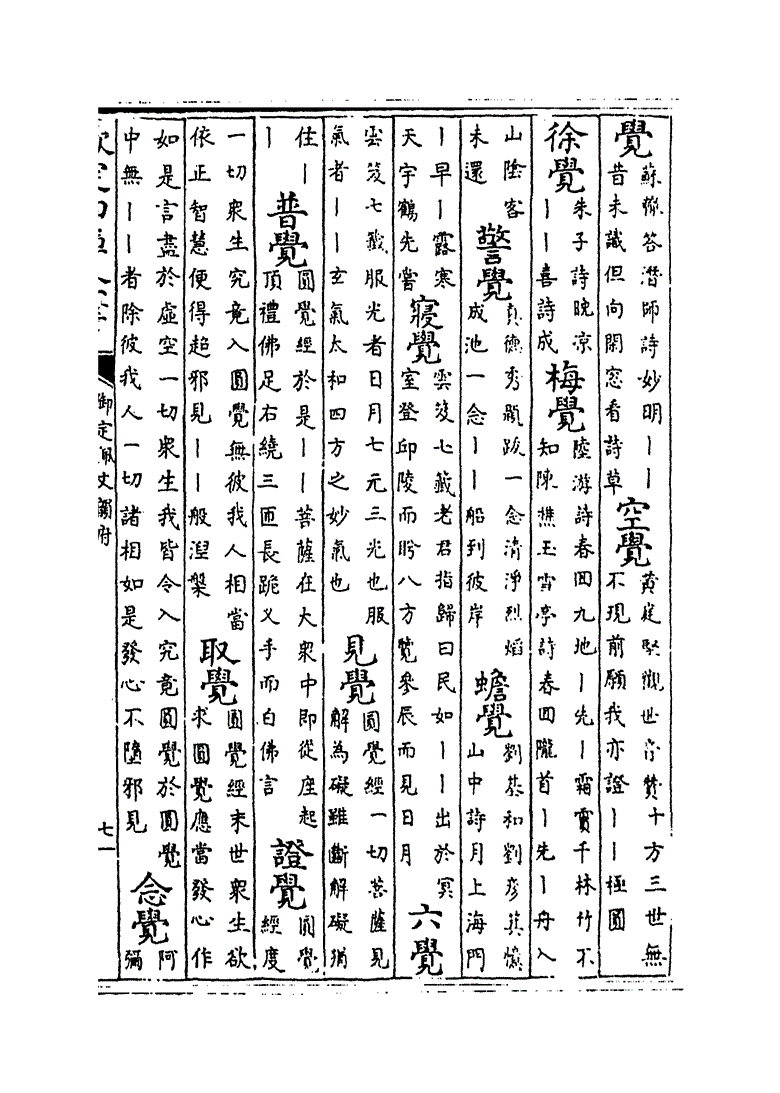 覺蘇轍答潛師詩妙明丨丨
昔未識但向閑窓看詩草空覺黄庭堅觀世音贊十方三世無
不現前願我亦證丨丨極圓
徐覺朱子詩晚凉
丨丨喜詩成梅覺陸游詩春回九地丨先丨霜實千林竹不
知陳樵玉雪亭詩春回隴首丨先丨舟入
山陰客
未還警覺真德秀顯跋一念清淨烈熖
成池一念丨丨船到彼岸蟾覺劉基和劉彦箕憶
山中詩月上海門
丨早丨露寒
天宇鶴先嘗寢覺雲笈七籖老君指歸曰民如丨丨出於冥
室登邱陵而盻八方覽參辰而見日月六覺
雲笈七籖服光者日月七元三光也服
氣者丨丨玄氣太和四方之妙氣也見覺圓覺經一切菩薩見
解為礙雖斷解礙猶
住丨
丨普覺圓覺經於是丨丨菩薩在大衆中即從座起
頂禮佛足右繞三匝長跪义手而白佛言證覺圓覺
經度
一切衆生究竟入圓覺無彼我人相當
依正智慧便得超邪見丨丨般湼槃取覺圓覺經末世衆生欲
求圓覺應當發心作
如是言盡於虛空一切衆生我皆令入究竟圓覺於圓覺
中無丨丨者除彼我人一切諸相如是發心不墮邪見念覺阿
彌
欽定四庫全書
御定佩文韻府
七一